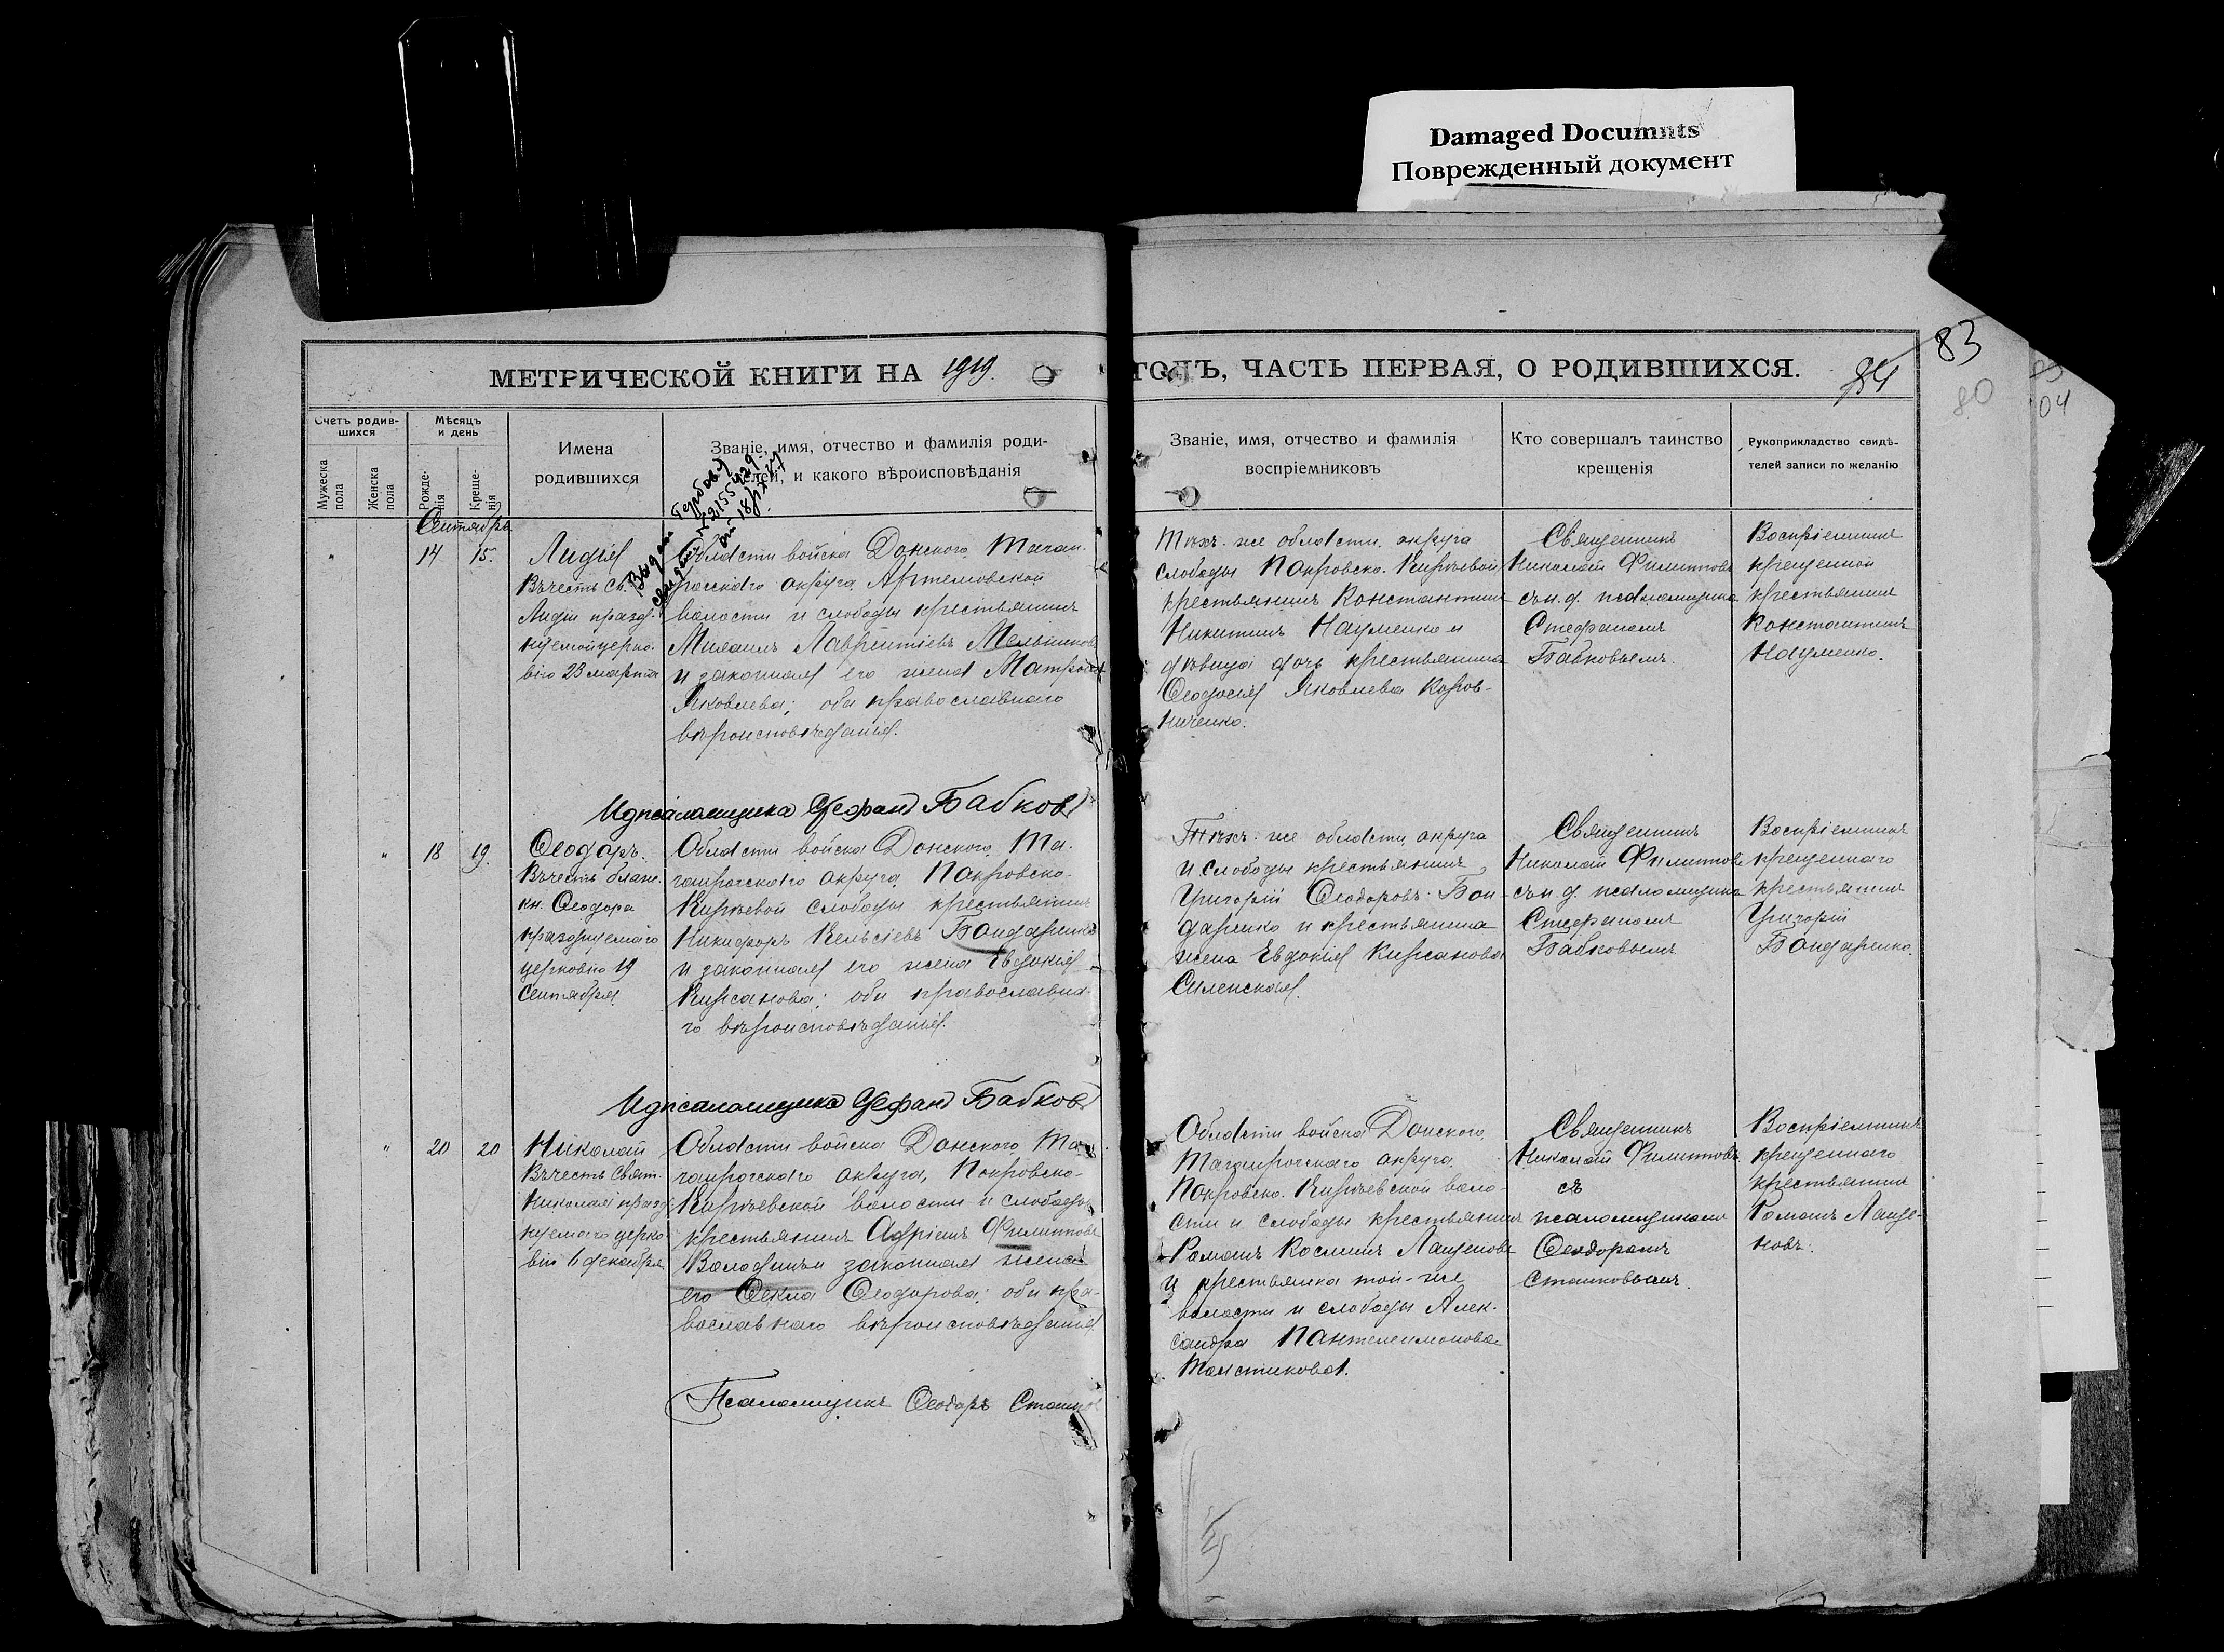 Damaged Documnts
Поврежденный документ
МЕТРИЧЕСКОЙ КНИГИ НА 1919
ГОДЪ, ЧАСТЬ ПЕРВАЯ, О РОДИВШИХСЯ.
84
83
80
04
Счетъ родив-
шихся
Мужеска
пола
Женска
пола
Мѣсяцъ
и день
Рожде-
нія
Креще-
нія
Имена
родившихся
Званіе, имя, отчество и фамилія роди-
телей, и какого вѣроисповѣданія
Званіе, имя, отчество и фамилія
воспріемниковъ
Кто совершалъ таинство
крещенія
Рукоприкладство свидѣ-
телей записи по желанію
Сентябрь
14 15.
Лидія
Въ честь Св.
Лидіи празд-
нуемой церко-
вію 23 марта
Выдан
Области войска Донского, Таган-
рогскаго округа, Артемовской
волости и слободы крестьянинъ
Михаилъ Лаврентіевъ Мельников
и законная его жена Матрона
Яковлева; оба православнаго
вѣроисповѣданія.
Тѣхъ же области, округа
слободы Покровско-Кирѣевой
крестьянинъ Константинъ
Никитинъ Науменко и
дѣвица дочь крестьянина
Ѳеодосія Яковлева Коров-
ниченко.
Священникъ
Николай Филипповъ
съ и. д. псаломщика
Стефаномъ
Бабковымъ.
Воспріемникъ
крещенной
крестьянинъ
Константинъ
Науменко.
И д псаломщика Стефанъ Бабковъ
18 19.
Ѳеодоръ.
Въ честь благ.
кн. Ѳеодора
празднуемаго
церковію 19
Сентября.
Области войска Донского, Та-
ганрогскаго округа, Покровско-
Кирѣевой слободы крестьянинъ
Никифоръ Кельсіевъ Бондаренко
и законная его жена Евдокія
Кирсанова; оба православна-
го вѣроисповѣданія.
Тѣхъ же области, округа
и слободы крестьянинъ
Григорій Ѳеодоровъ Бон-
даренко и крестьянина
жена Евдокія Кирсанова
Силенская.
Священникъ
Николай Филипповъ
съ и. д. псаломщика
Стефаномъ
Бабковымъ
Воспріемникъ
крещеннаго
крестьянинъ
Григорій
Бондаренко.
И д псаломщика Стефанъ Бабковъ
20 20
Николай
Въ честь Свят.
Николая празд-
нуемаго церко-
вію 6 декабря
Области войска Донского, Та-
ганрогскаго округа, Покровско-
Кирѣевской волости и слободы
крестьянинъ Адріанъ Филипповъ
Володинъ и законная жена
его Ѳекла Ѳеодорова; оба пра-
вославнаго вѣроисповѣданія.
Области войска Донского,
Таганрогскаго округа,
Покровско-Кирѣевской воло-
сти и слободы крестьянинъ
Романъ Косминъ Лащеновъ
и крестьянка той-же
волости и слободы Алек-
сандра Пантелеимонова
Толстикова.
Священникъ
Николай Филипповъ
съ
псаломщикомъ
Ѳеодоромъ
Сташковымъ.
Воспріемникъ
крещеннаго
крестьянинъ
Романъ Лаще-
новъ.
Псаломщикъ Ѳеодоръ Сташков